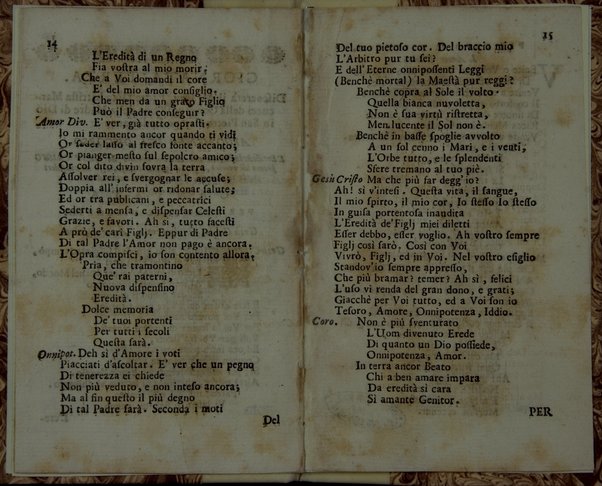 14
L'Eredità di un Regno
Fia vostra al mio morir.
Che a Voi domandi il core
E' del mio amor consiglio.
Che men da un grato Figlio
Può il Padre conseguir?
Amor Div. E' ver, già tutto oprasti.
Io mi rammento ancor quando ti vidi
Or seder lasso al fresco fonte accanto;
Or pianger mesto sul sepolcro amico;
Or col dito divin sovra la terra
Assolver rei, e svergognar le accuse;
Doppia all' infermi or ridonar salute;
Ed or tra publicani, e peccatrici
Sederti a mensa, e dispensar Celesti
Grazie, e favori. Ah sì, tutto facesti
A prò de' cari Figlj. Eppur di Padre
Di tal Padre l'Amor non pago è ancora.
L'Opra compisci, io son contento allora.
Pria, che tramontino
Que' rai paterni,
Nuova dispensino
Eredità.
Dolce memoria
De' tuoi portenti
Per tutti i secoli
Questa sarà.
Onnipot. Deh sì d'Amore i voti
Piacciati d'ascoltar. E' ver che un pegno
Di tenerezza ei chiede
Non più veduto, e non inteso ancora;
Ma al fin questo il più degno
Di tal Padre sarà. Seconda i moti
Del
15
Del tuo pietoso cor. Del braccio mio
L'Arbitro pur tu sei?
E dell' Eterne onnipossenti Leggi
(Benchè mortal) la Maestà pur reggi?
Benchè copra al Sole il volto
Quella bianca nuvoletta,
Non è sua virtù ristretta,
Men lucente il Sol non è.
Benchè in basse spoglie avvolto
A un sol cenno i Mari, e i venti,
L'Orbe tutto, e le splendenti
Sfere tremano al tuo piè.
Gesù Cristo Ma che più far degg'io?
Ah! sì v'intesi. Questa vita, il sangue,
Il mio spirto, il mio cor, Io stesso Io stesso
In guisa portentosa inaudita
L'Eredità de' Figlj miei diletti
Esser debbo, esser voglio. Ah vostro sempre
Figlj così sarò. Così con Voi
Vivrò, Figlj, ed in Voi. Nel vostro esiglio
Standov'io sempre appresso,
Che più bramar? temer? Ah sì, felici
L'uso vi renda del gran dono, e grati;
Giacchè per Voi tutto, ed a Voi son io
Tesoro, Amore, Onnipotenza, Iddio.
Coro. Non è più sventurato
L'Uom divenuto Erede
Di quanto un Dio possiede,
Onnipotenza, Amor.
In terra ancor Beato
Chi a ben amare impara
Da eredità sì cara
Sì amante Genitor.
PER